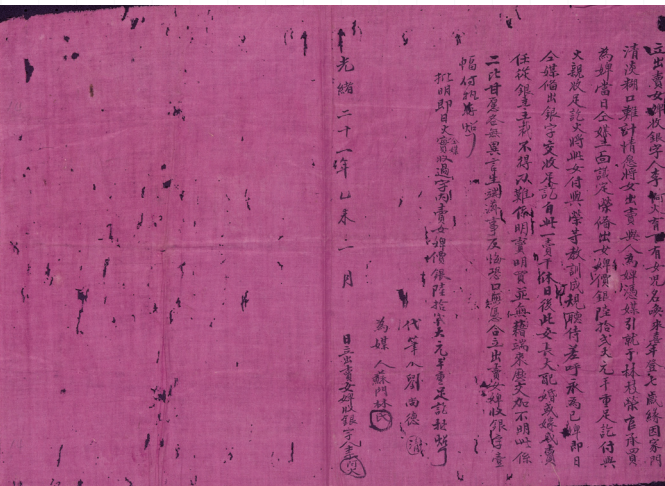 立出賣女婢收銀字人李阿火有一女兒名喚來喜年登七歲緣因家門
清淡糊口難計情愿將女出賣與人為婢憑媒引就于林彩榮官承買
為婢當日仝媒三面議定榮備出女婢價銀陸拾弍大元平重足訖付與
火親收足訖火將此女付與榮等教訓成規聽侍差呼永為己婢即日
仝媒備出銀字交收足訖自此一賣千休日後此女長大配婚或嫁或賣
任從銀主主裁不得刁難係明賣明買並無糟端來歷交加不明此係
二比甘愿各無異言生端滋事反悔恐口無憑合立出賣女婢收銀字壹
幅付執為炤
批明即日火實收過字內賣女婢價銀陸拾弍大元平重足訖批炤
代筆人劉尚德
為媒人蘇門林氏
光緒二十一年乙未 月 日立出賣女婢收銀字人李阿火